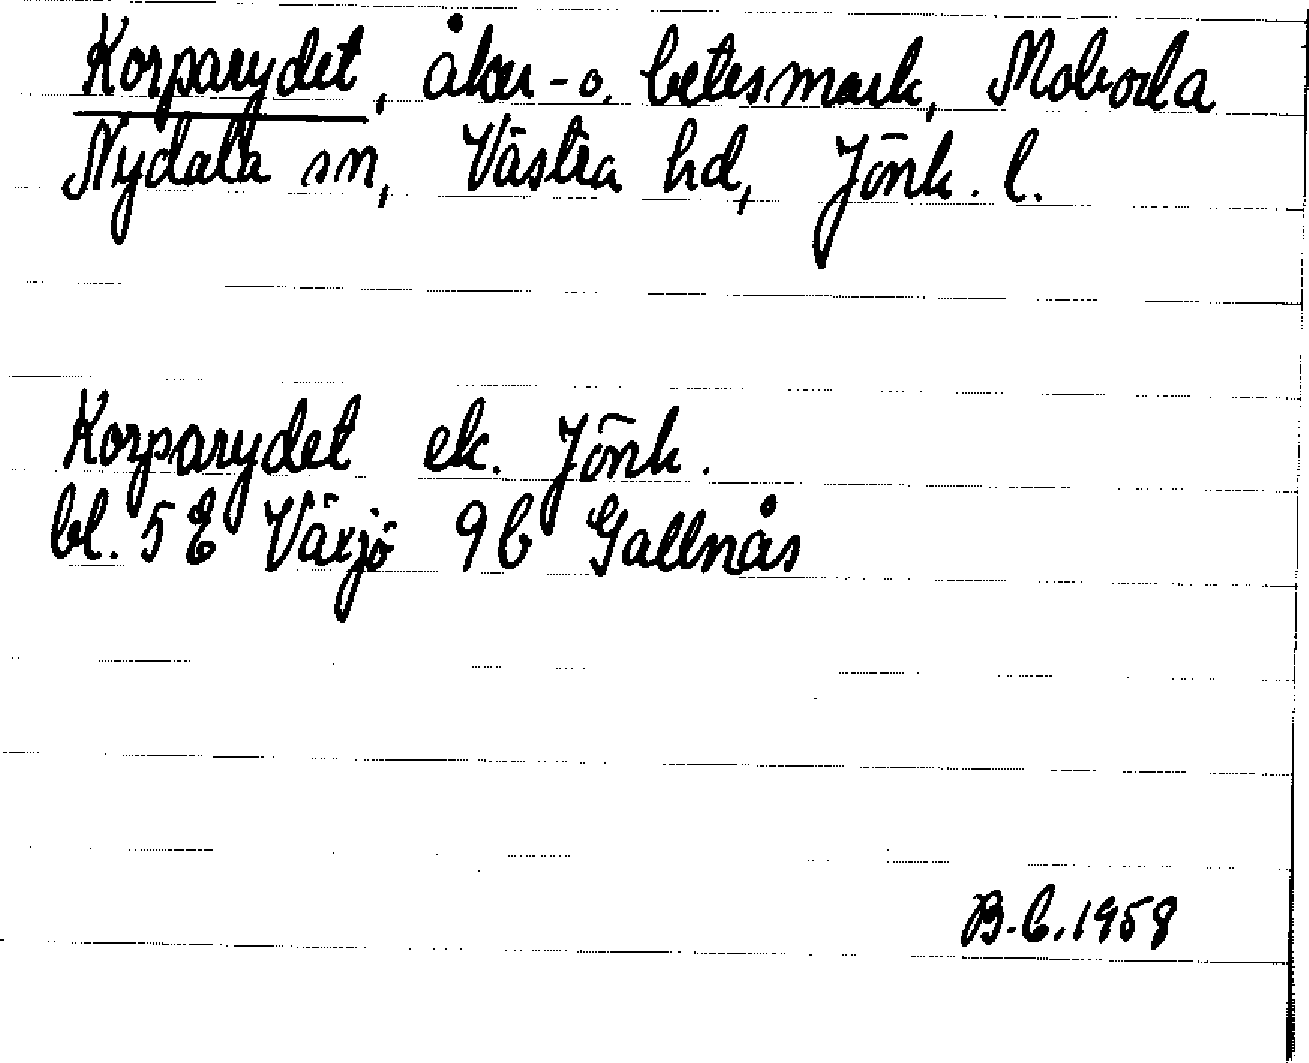 Korparydet, åker- o. betesmark, Moboda
Nydala sn, Västra hd, Jönk. l.
Korparydet ek. Jönk.
bl. 5 E Växjö 9 b Gallnås
B.b.1958